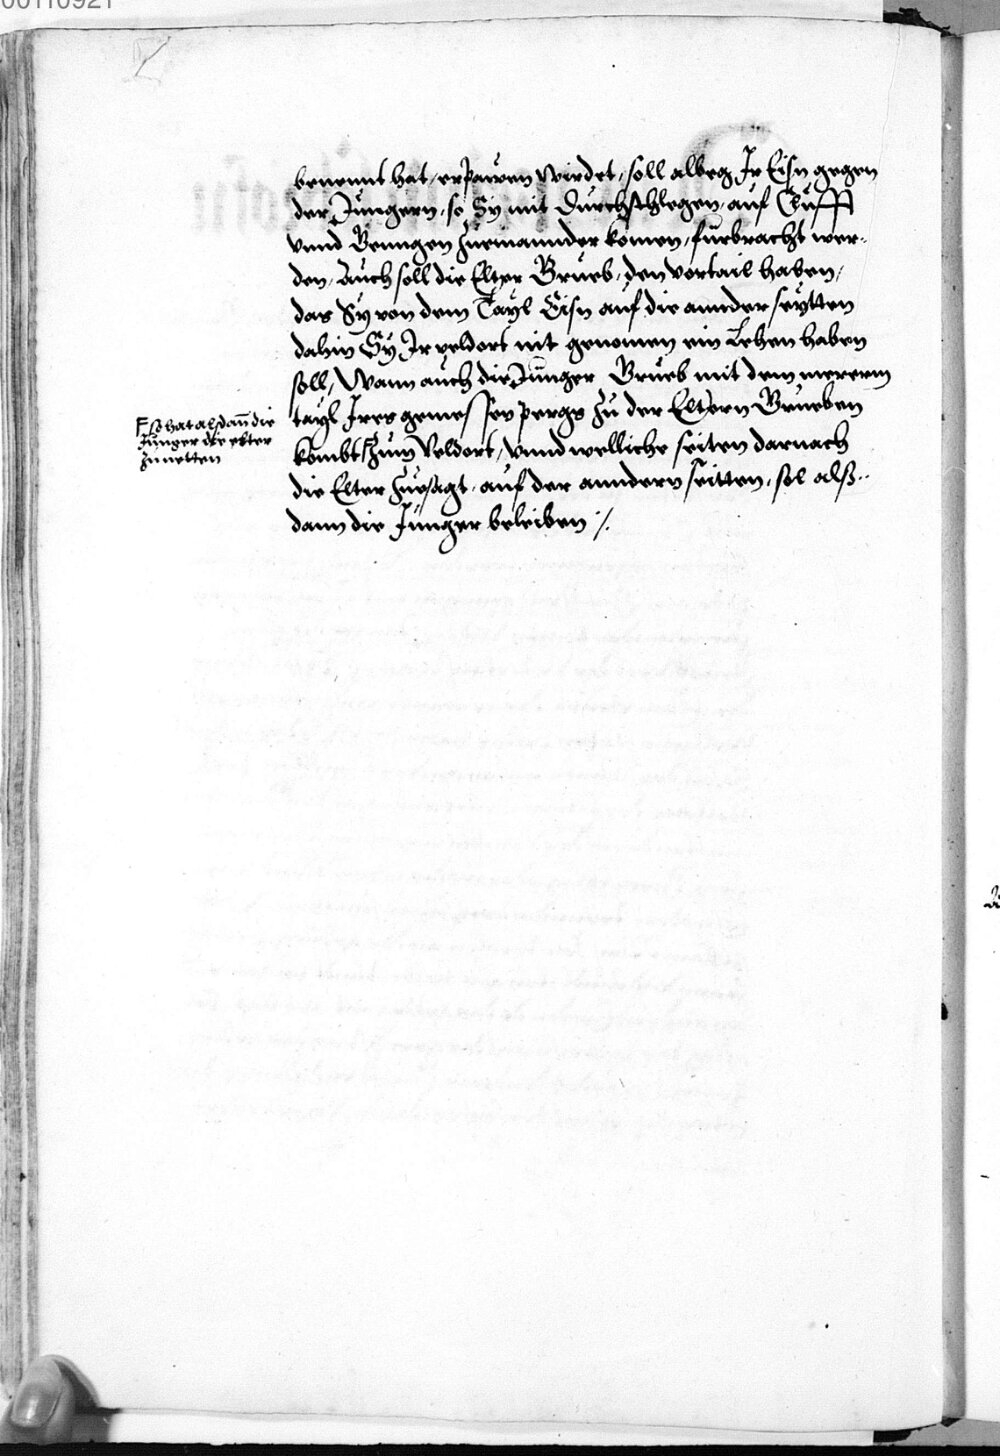 00110921
benennt hat, erpawen wirdet, soll albeg Ir Eisn gegen
der Jüngern, so Sy mit Durchschlegen, auf Clüfft
vnnd Genngen zuenannder komen, furbracht wer-
den, Auch soll die Elter Grueb, den vortail haben,
das Sy von dem Tayl Eisn auf die annder seytten
dahin Sy Ir veldort nit genomen ein Lehen haben
soll, Wann auch die Jünger Grueb mit dem merern
tayl Ires gemessen pergs zu der Eltern Grueben
kombt zum Veldort, vnnd welliche seiten darnach
die Elter zuesagt, auf der anndern seitten, sol alß-
dann die Jünger beleiben /.
so hat alsdann die
Junger die elter
zunetten